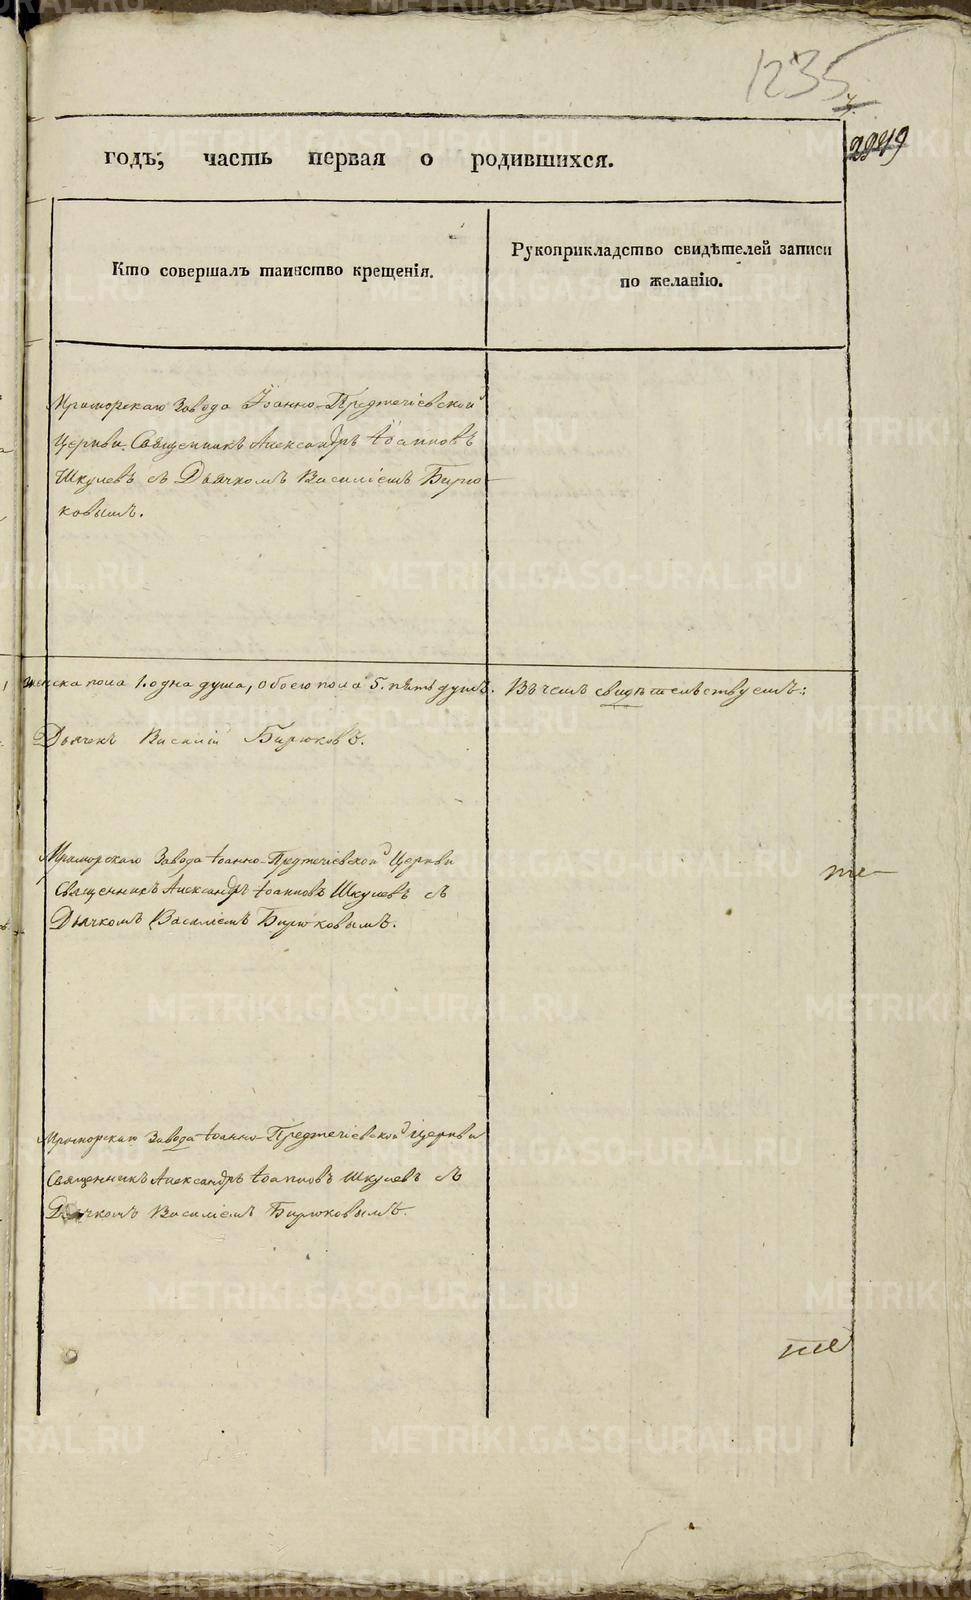 1235
годъ, часть первая о родившихся.
Кто совершалъ таинство крещенія.
Рукоприкладство свидѣтелей записи
по желанію.
Мраморскаго Завода Іоанно-Предтечіевской
Церкви Священникъ Александръ Іоанновъ
Шкулевъ съ Дьячкомъ Василіемъ Бирю-
ковымъ.
женска пола 1. одна душа, обоего пола 5. пять душъ. Въ чемъ свидѣтельствуемъ:
Дьячекъ Василій Бирюковъ.
Мраморскаго Завода Іоанно-Предтечіевской Церкви
Священникъ Александръ Іоанновъ Шкулевъ съ
Дьячкомъ Василіемъ Бирюковымъ.
Мраморскаго Завода Іоанно-Предтечіевской Церкви
Священникъ Александръ Іоанновъ Шкулевъ съ
Дьячкомъ Василіемъ Бирюковымъ.
METRIKI.GASO-URAL.RU